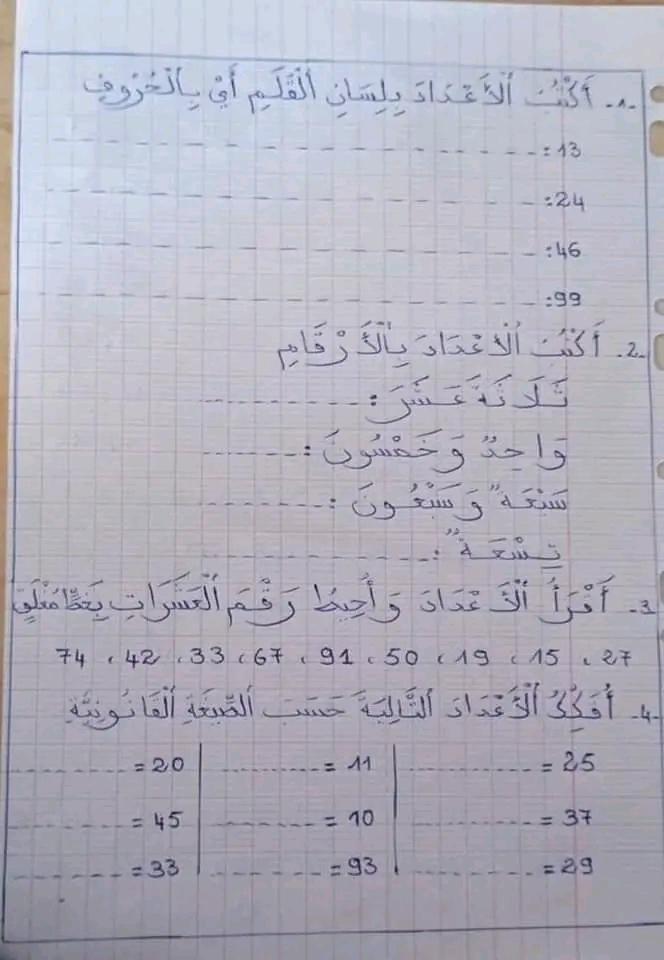 1. أَكْتُبُ ٱلْأَعْدَادَ بِلِسَانِ ٱلْقَلَمِ أَيْ بِٱلْحُرُوفِ
13: ------------
24: ------------
46: ------------
99: ------------
2. أَكْتُبُ ٱلْأَعْدَادَ بِٱلْأَرْقَامِ
ثَلَاثَةَ عَشَرَ: ------------
وَاحِدٌ وَخَمْسُونَ: ------------
سَبْعَةٌ وَسَبْعُونَ: ------------
تِسْعَةٌ: ------------
3. أَقْرَأُ ٱلْأَعْدَادَ وَأُحِيطُ رَقْمَ ٱلْعَشَرَاتِ بِخَطٍّ مُغْلَقٍ
27 ، 15 ، 19 ، 50 ، 91 ، 67 ، 33 ، 42 ، 74
4. أُفَكِّكُ ٱلْأَعْدَادَ ٱلتَّالِيَةَ حَسَبَ ٱلصِّيغَةِ ٱلْقَانُونِيَّةِ
25 = ------------ | 11 = ------------ | 20 = ------------
37 = ------------ | 10 = ------------ | 45 = ------------
29 = ------------ | 93 = ------------ | 33 = ------------